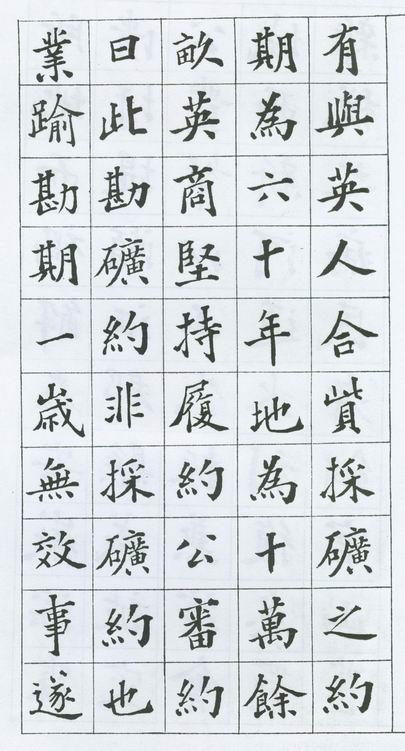 有與英人合貲採礦之約
期為六十年地為十萬餘
畝英商堅持履約公審約
曰此勘礦約非採礦約也
業踰勘期一歲無效事遂